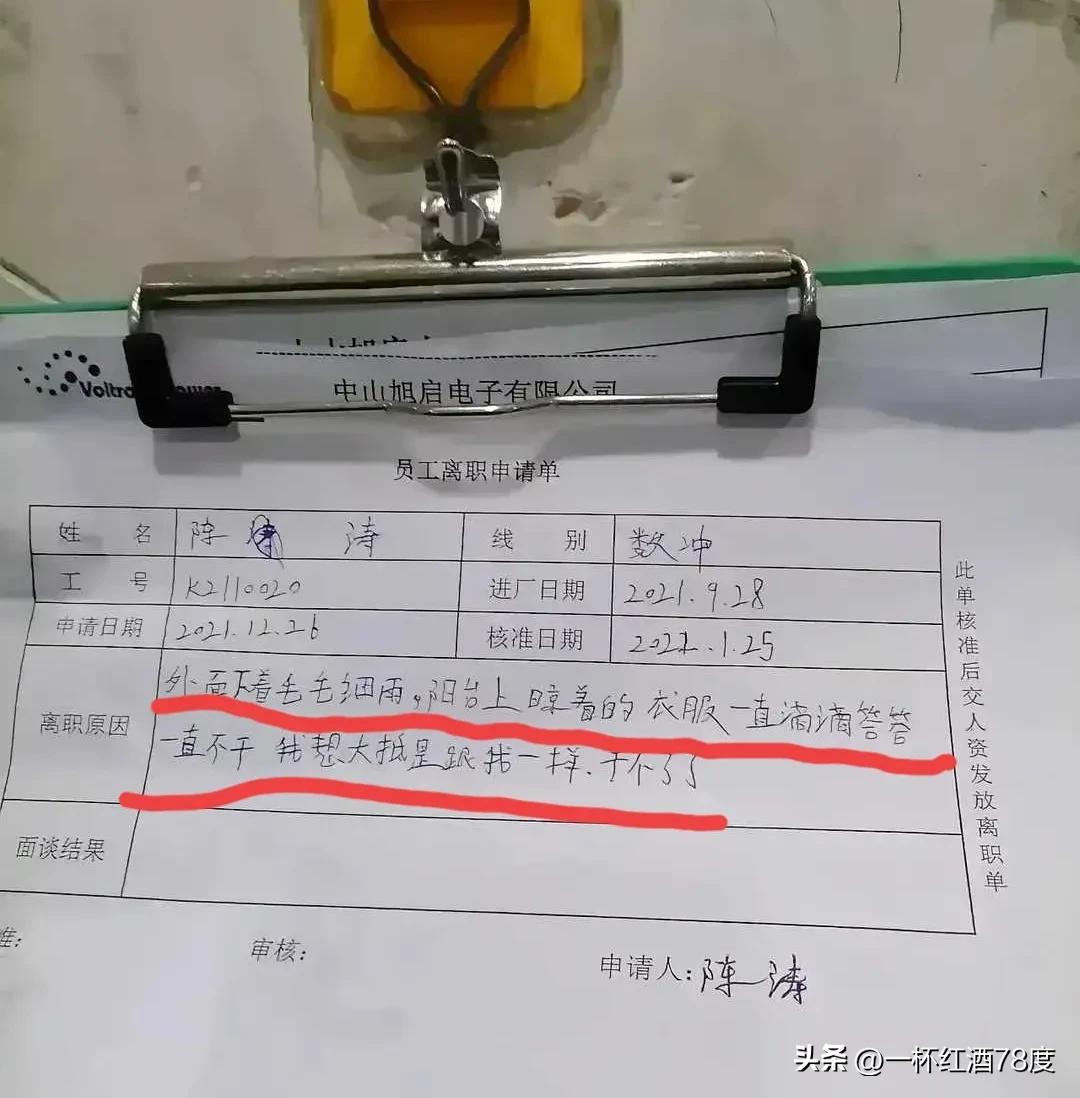 中山旭启电子有限公司
员工离职申请单
姓 名 陈 涛 线 别 数冲
工 号 K2110020 进厂日期 2021.9.28
申请日期 2021.12.26 核准日期 2022.1.25
离职原因
外面下着毛毛细雨,阳台上晾着的衣服一直滴滴答答
一直不干 我想大抵是跟我一样.干不了了
面谈结果
此单核准后交人资发放离职单
准:
审核:
申请人:陈涛
头条 @一杯红酒78度